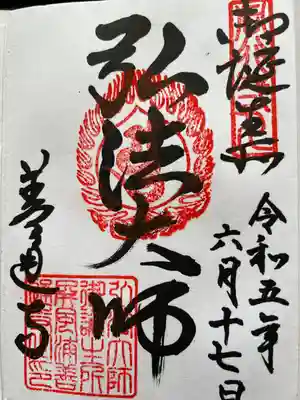 御誕生所
令和五年
六月十七日
弘法大師
善通寺
弘法大師
御誕生所